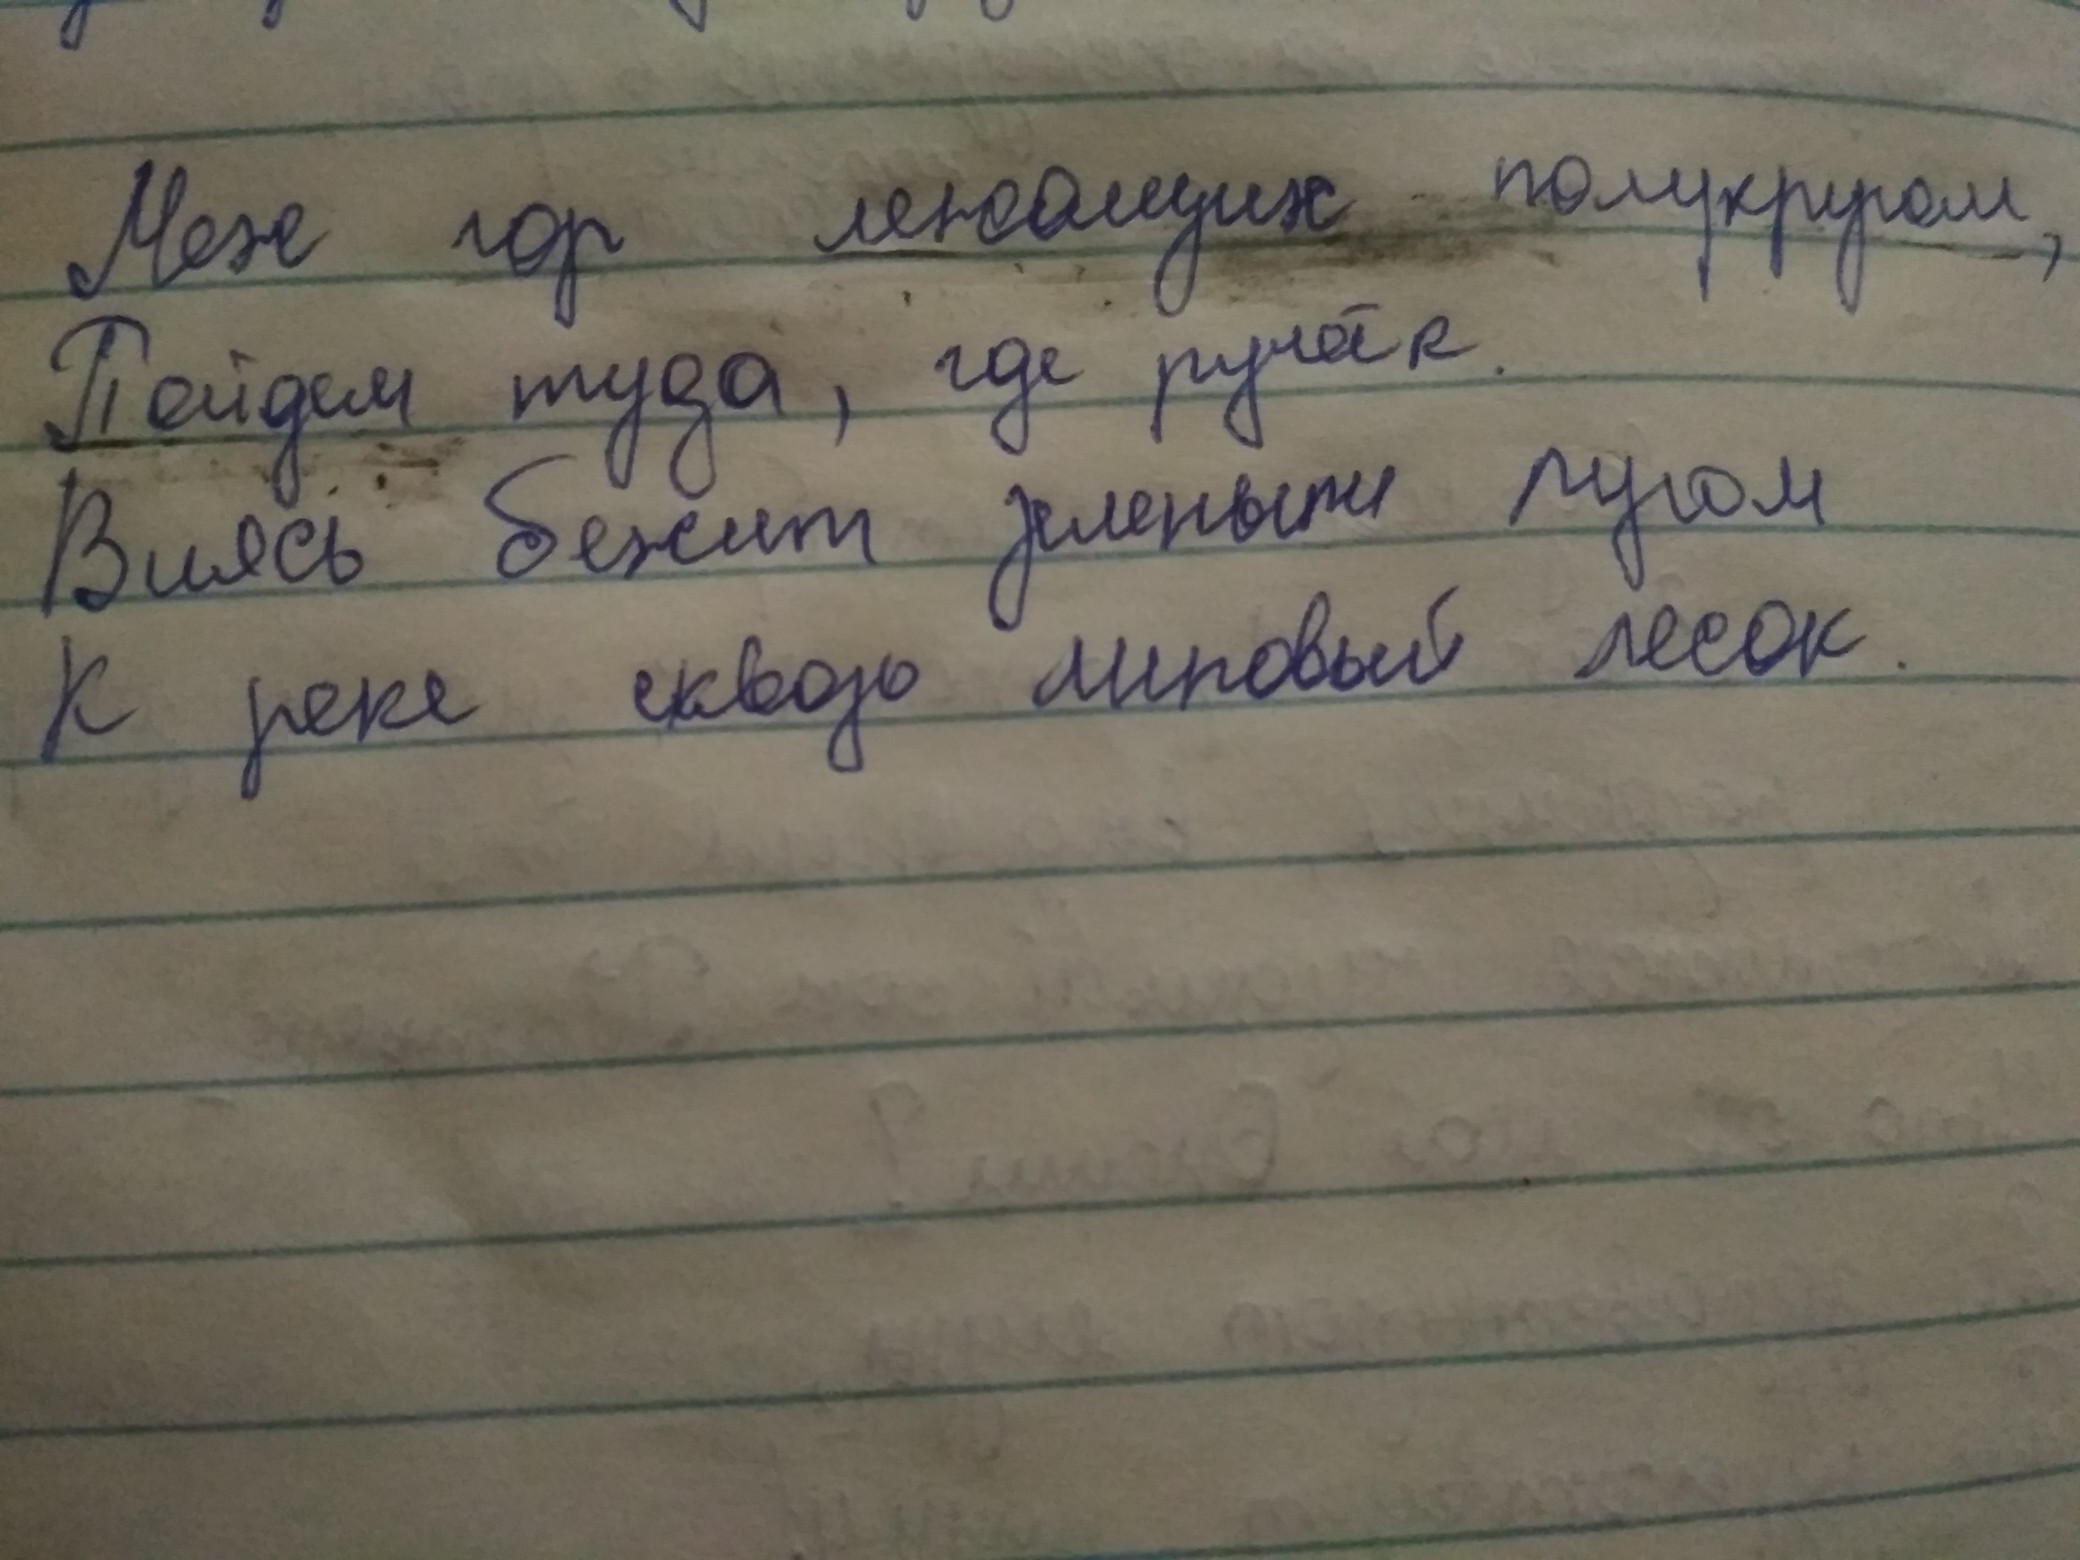 Меж гор лежащих полукругом,
Пойдем туда, где ручеёк.
Виясь бежит зеленым лугом
К реке сквозь липовый лесок.